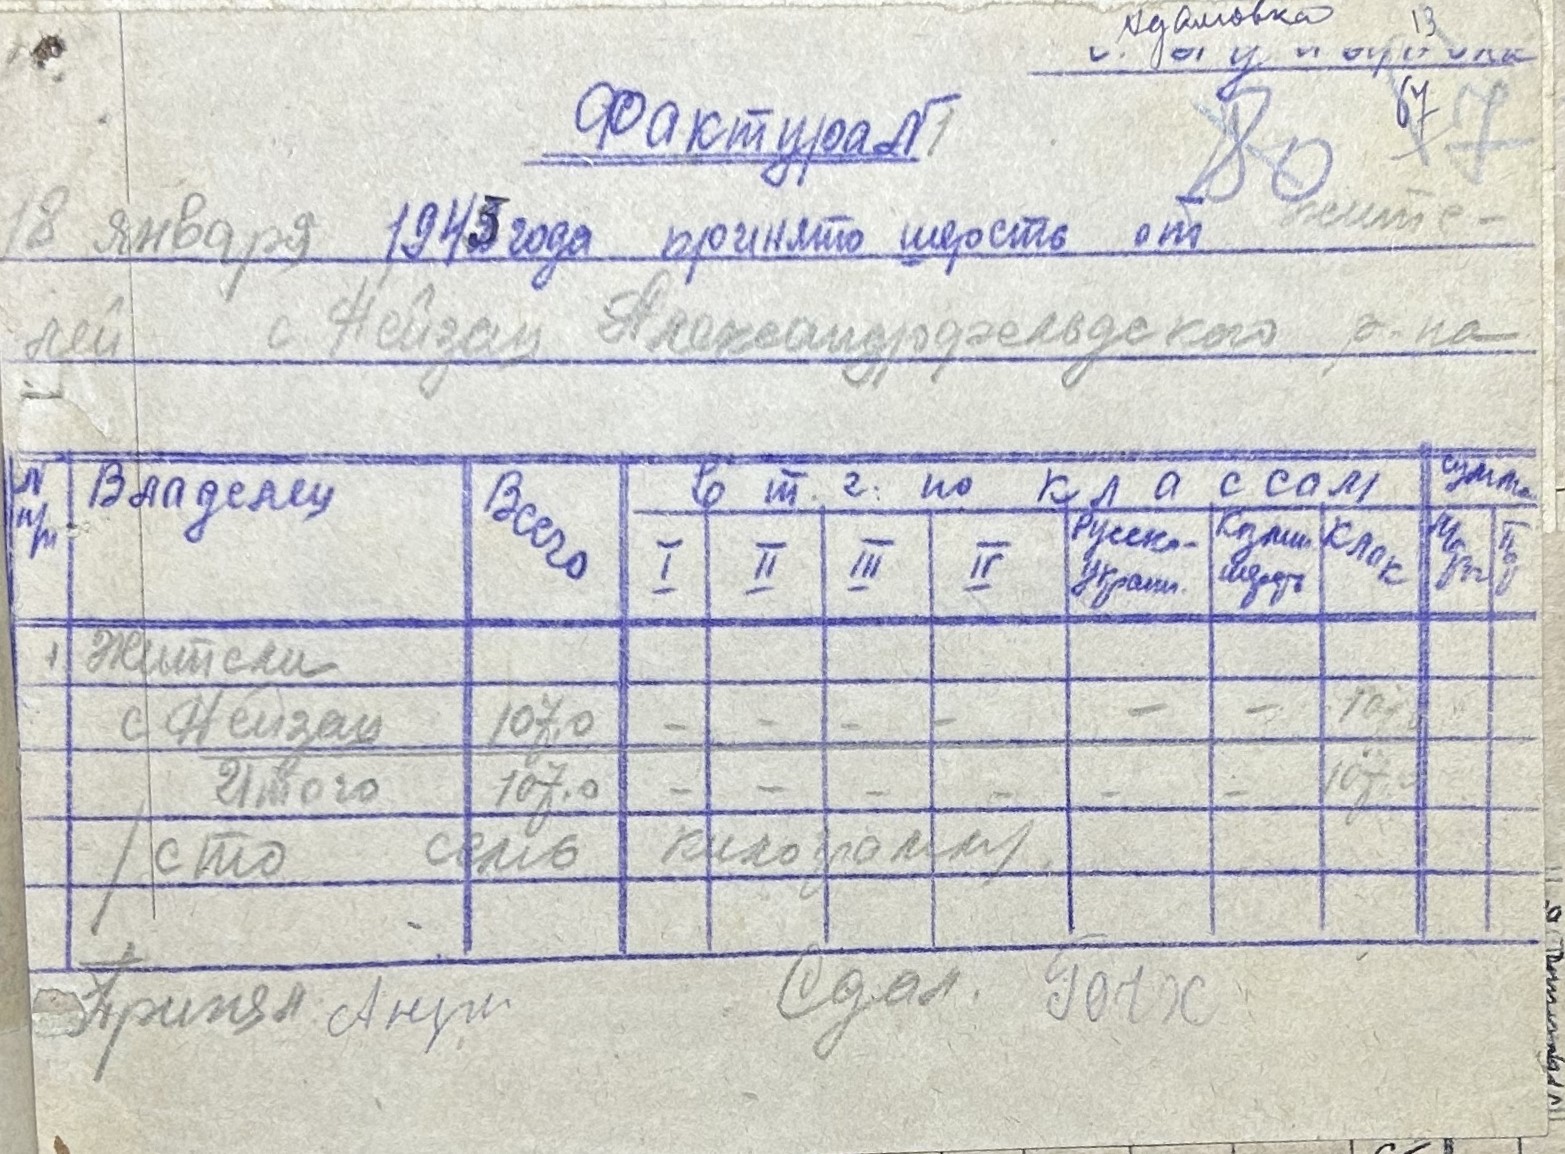 Адамовка 13
67
Фактура № 1
80 77
18 января 1943 года принято шерсть от жите-
лей с. Нейзац Александрфельдского р-на
№ п/п Владелец Всего в т. г. по классам сумма
I II III IV Русско-украин. Козлин шерсть Клак
1 Жители
с Нейзац 107,0 - - - - - - 107,0
Итого 107,0 - - - - - - 107,0
/сто семь килограмм/.
Принял Сдал.